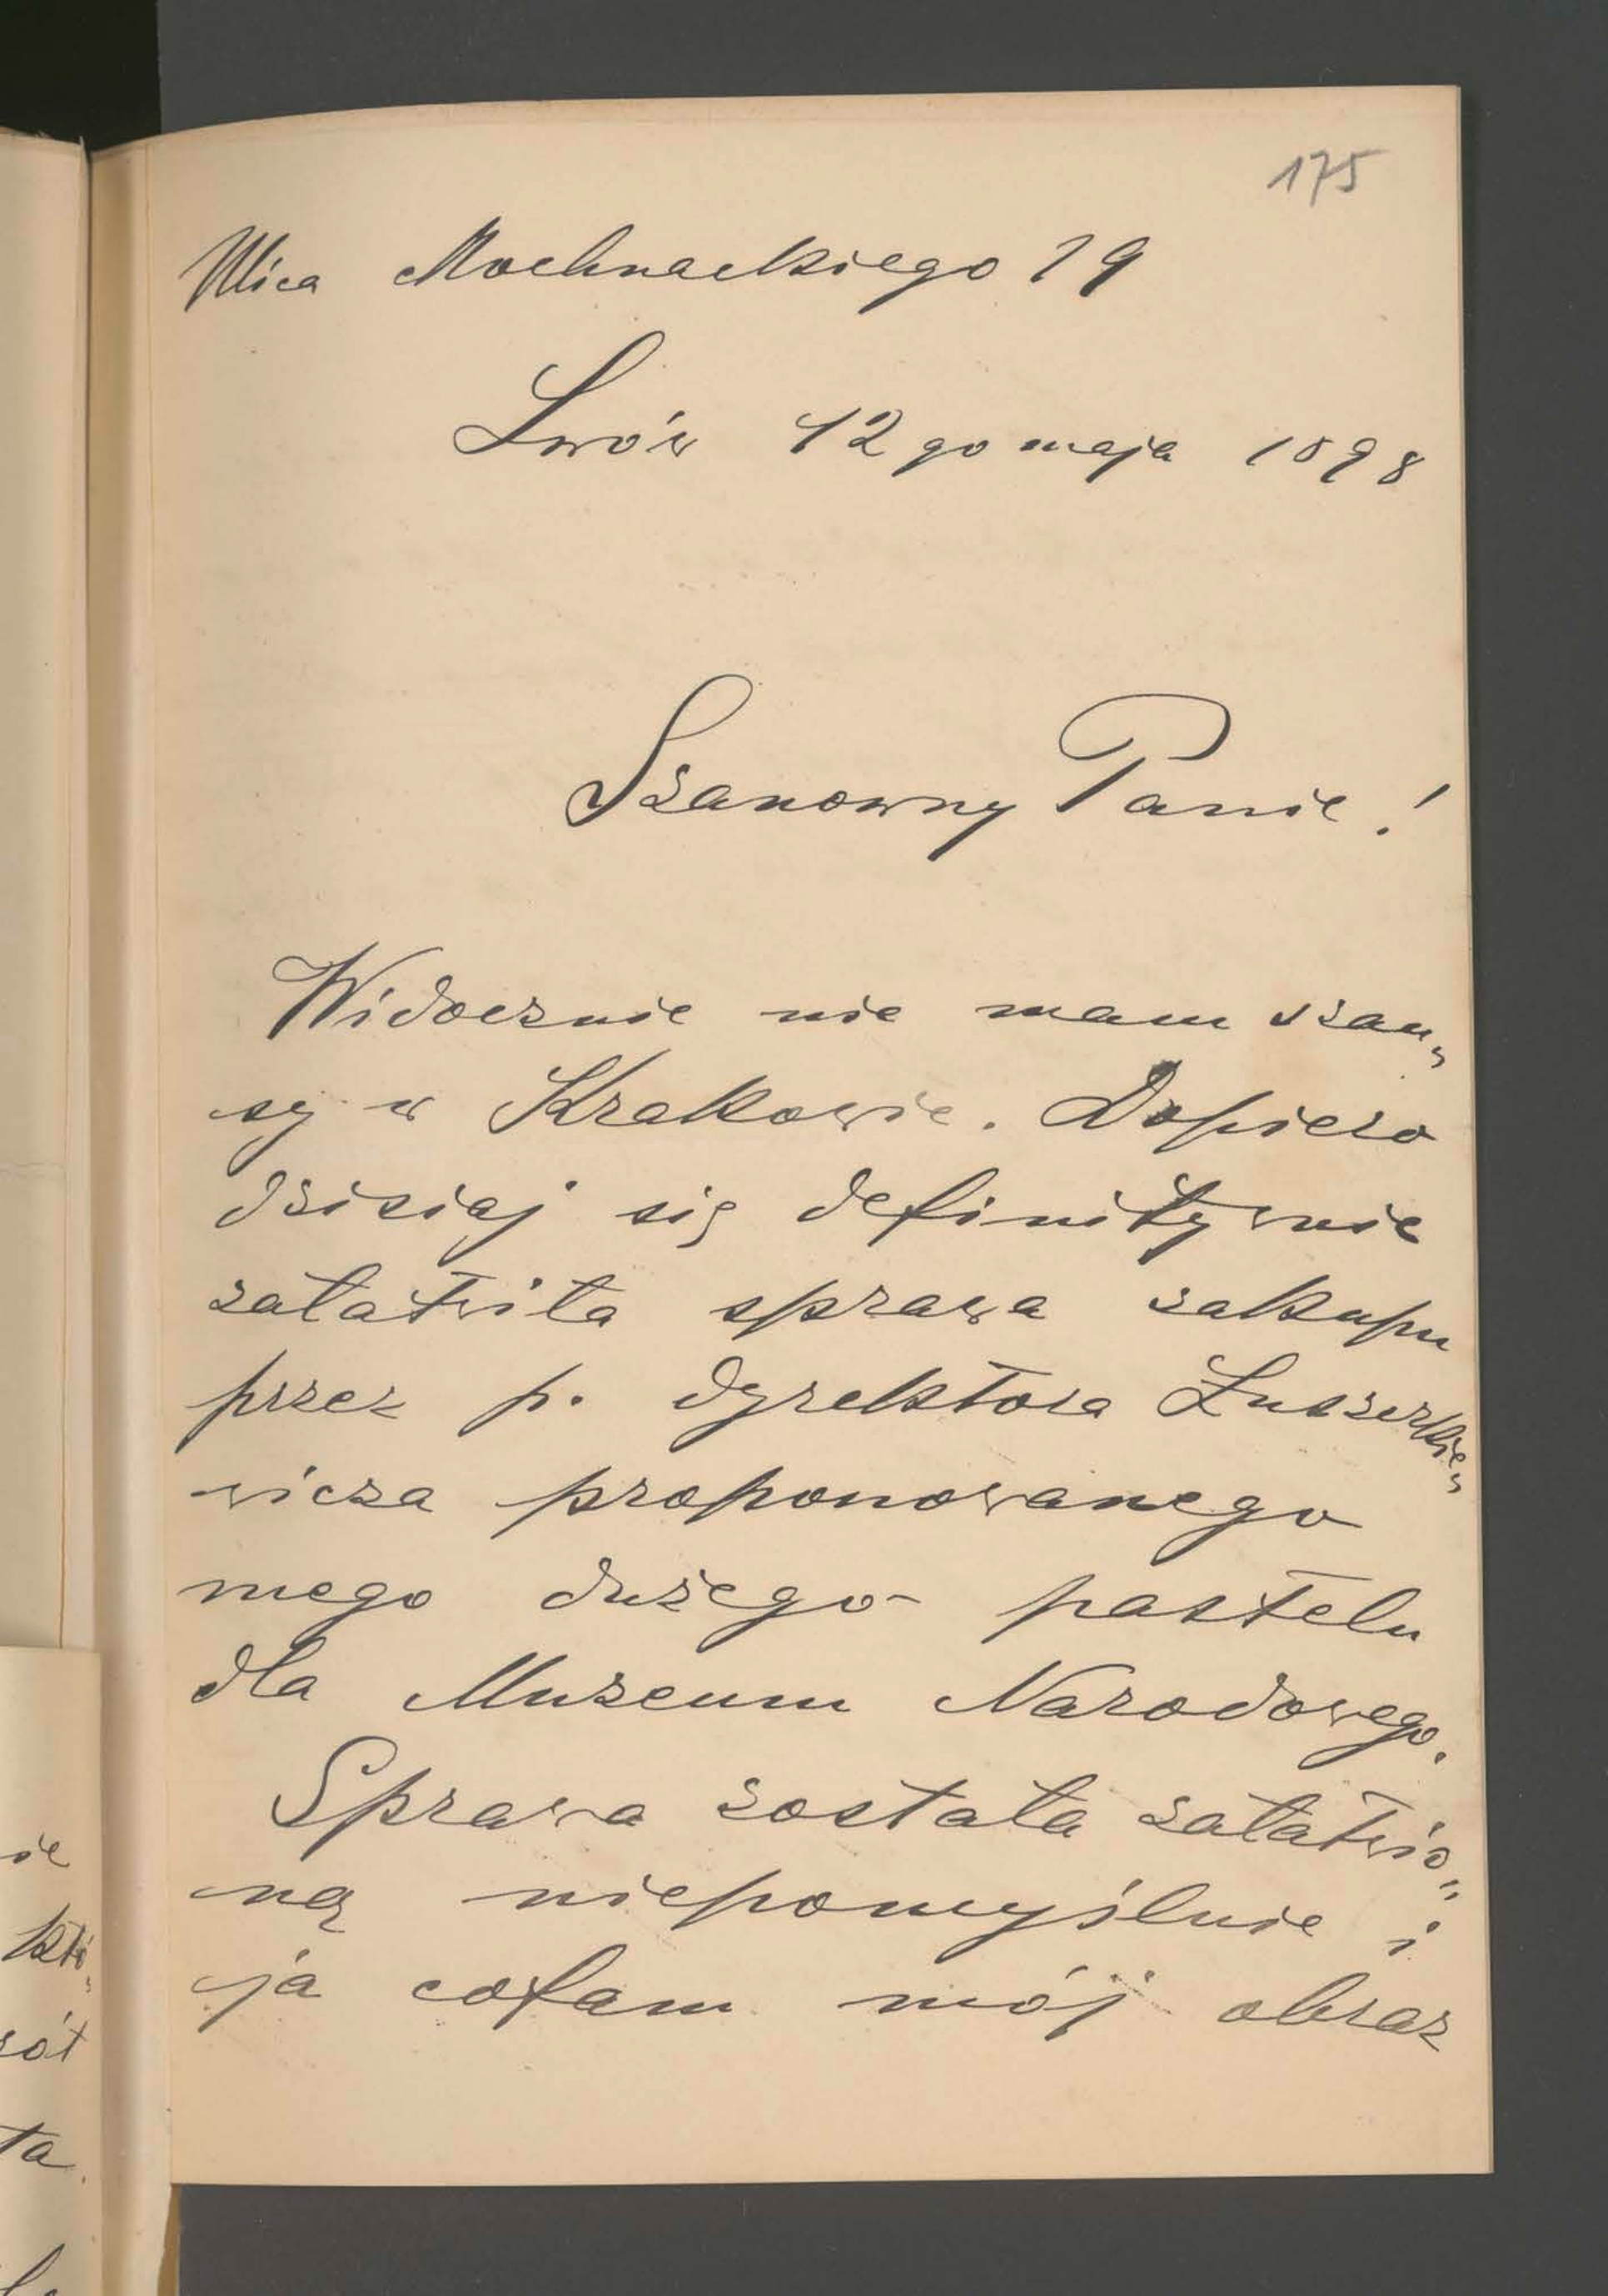 175
Ulica Mochnackiego 19
Lwów 12 go maja 1898
Szanowny Panie!
Widocznie nie mam szan„
sy w Krakowie. Dopiero
dzisiaj się definitywnie
załatwiła sprawa zakupu
przez p. dyrektora Łuszczkie„
wicza proponowanego
mego dużego pastelu
dla Muzeum Narodowego.
Sprawa została załatwio„
ną niepomyślnie i
ja cofam mój obraz